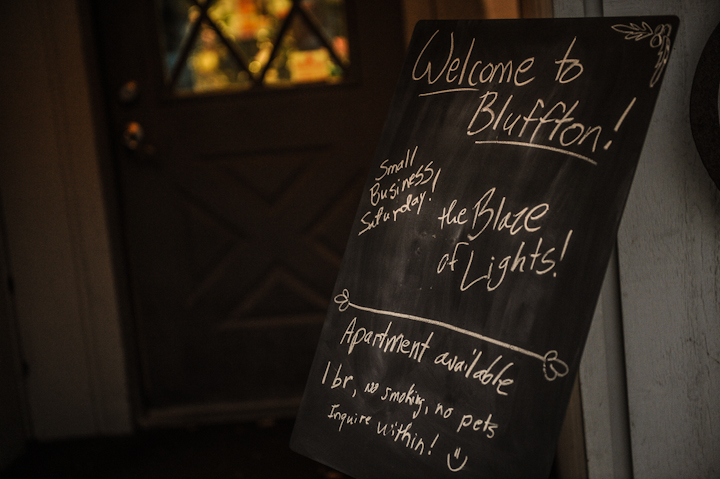 Welcome to
Bluffton!
Small
Business
Saturday!
the Blaze
of Lights!
Apartment available
1 br, no smoking, no pets
Inquire within!